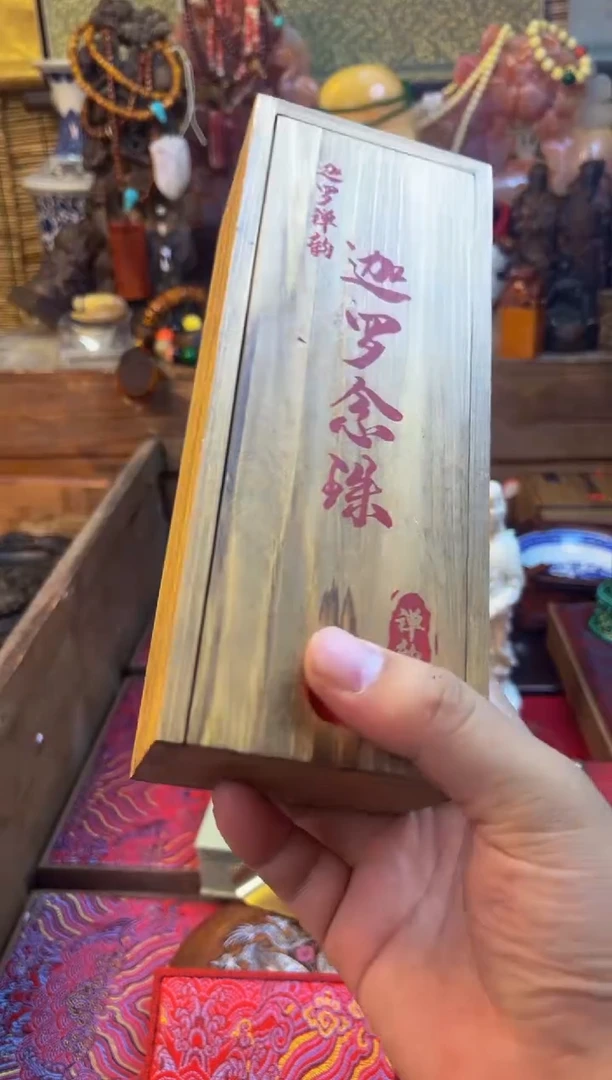 迦罗禅韵
迦罗念珠
禅韵